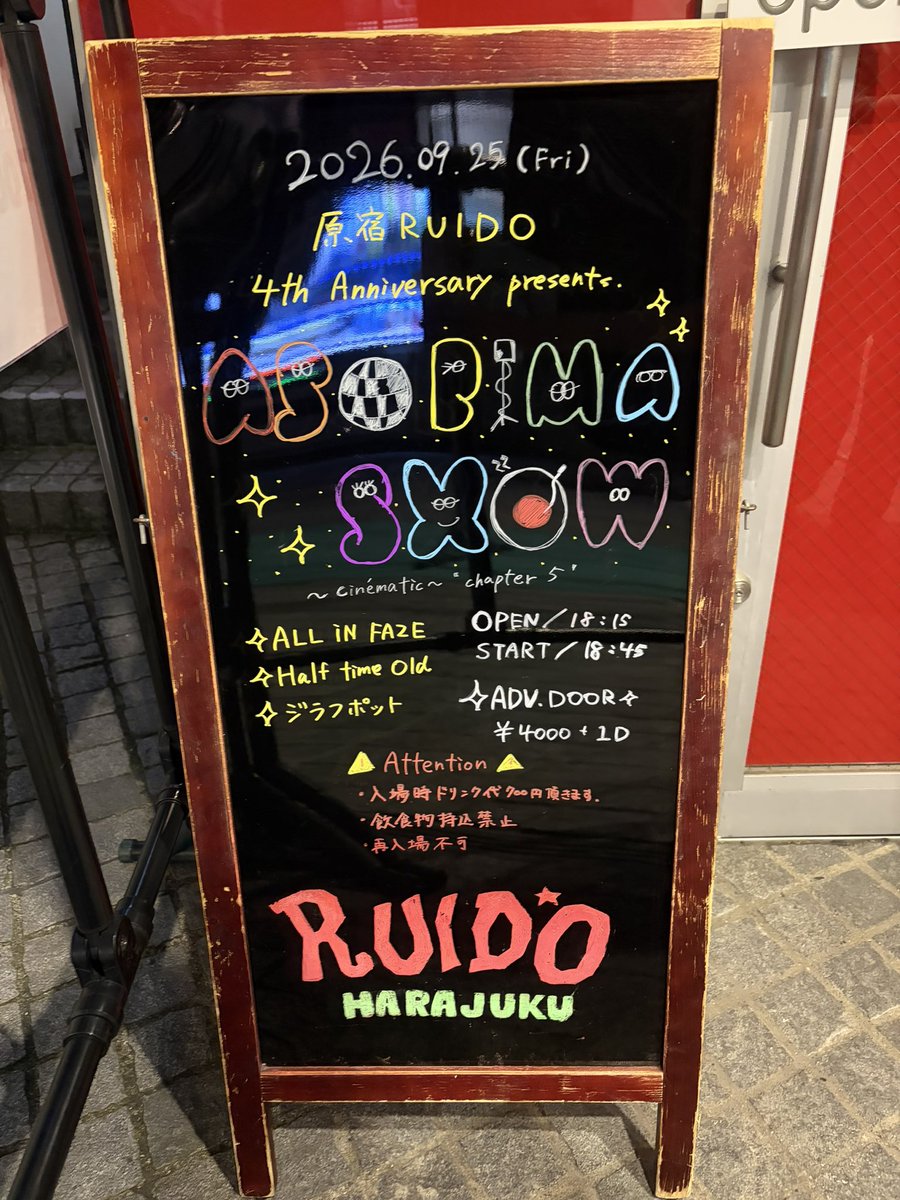 2026.09.25 (Fri)
原宿RUIDO
4th Anniversary presents.
ASOBIMA
SHOW
～cinématic～ "chapter 5"
ALL iN FAZE
Half time Old
ジラフポット
OPEN／18:15
START／18:45
ADV.DOOR
¥4000+1D
Attention
・入場時ドリンク代700円頂きます。
・飲食物持込禁止
・再入場不可
RUIDO
HARAJUKU